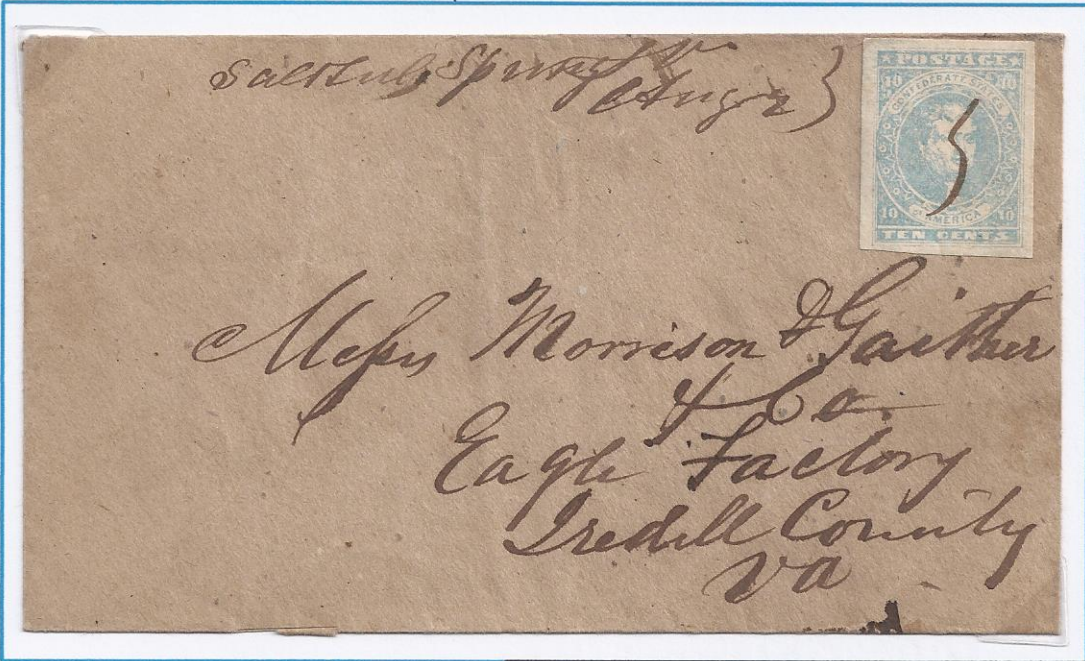 Springs
Aug 2
POSTAGE
10 10
CONFEDERATE STATES
OF AMERICA
10 10
TEN CENTS
Messrs Morrison & Gaither
& Co.
Eagle Factory
Iredell County
Va